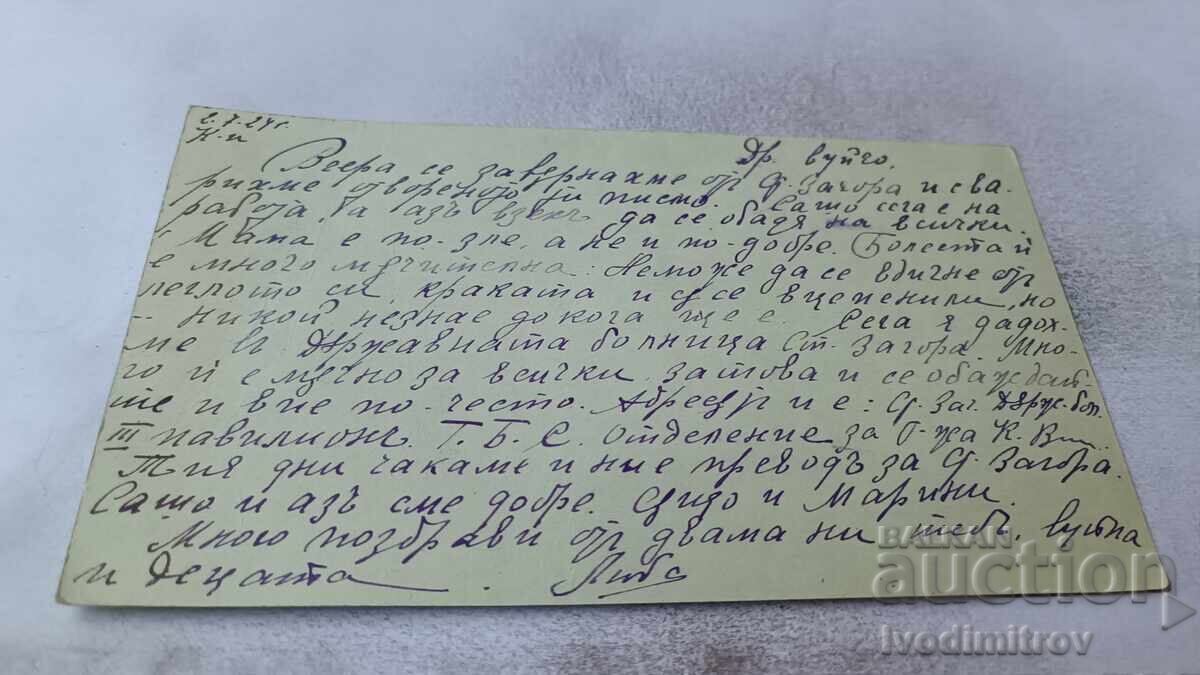 2.7.24г.
К-ц
Др. вуйчо,
Вчера се завърнахме отъ Ст. Загора и сва-
рихме отвореното ти писмо. Сашо сега е на
работа, та азъ взехъ да се обадя на всички.
Мама е по-зле, а не и по-добре. Болестта ѝ
е много мѫчителна: Неможе да се вдигне отъ
леглото си, краката и сѫ се вцепенили, но
никой незнае до кога ще е. Сега я дадох-
ме въ Държавната болница Ст. Загора. Мно-
го ѝ е мѫчно за всички, затова и се обаждай-
те и вие по-често. Адресътъ и е: Ст. Заг. Държ. бол.
III павилионъ. Т.Б.С. отделение за Г-жа К.
Тия дни чакаме и ние преводъ за Ст. Загора.
Сашо и азъ сме добре. и
Много поздрави отъ двама ни тебъ, вуйна
и децата. Люба
BALKAN
auction
Ivodimitrov